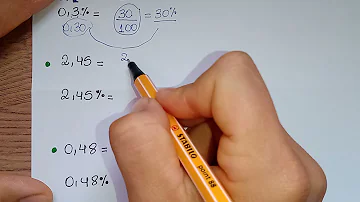 0,3% = 30/100 = 30%
0,30
• 2,45 = 2
2,45% =
• 0,48 =
0,48%
STABILO point 88